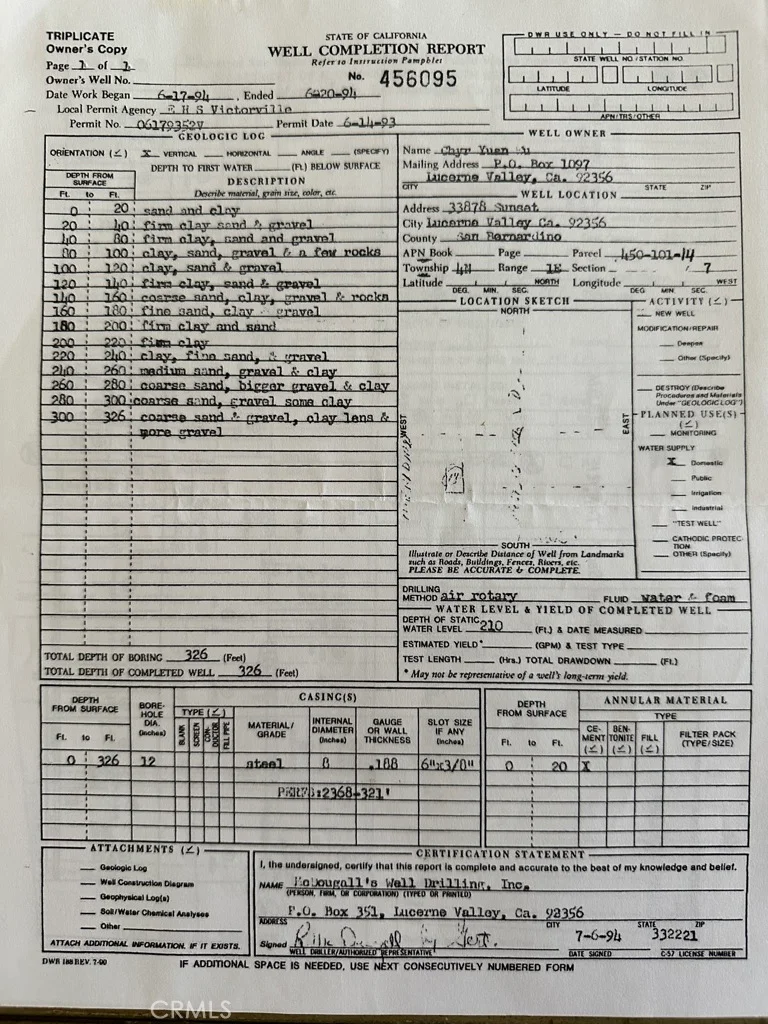 TRIPLICATE
Owner's Copy
STATE OF CALIFORNIA
WELL COMPLETION REPORT
Refer to Instruction Pamphlet
No. 456095
DWR USE ONLY — DO NOT FILL IN
STATE WELL NO./STATION NO.
LATITUDE LONGITUDE
APN/TRS/OTHER
Page 1 of 1
Owner's Well No.
Date Work Began 6-17-94, Ended 6-20-94
Local Permit Agency E H S Victorville
Permit No. Permit Date 6-14-93
GEOLOGIC LOG
ORIENTATION (∠) X VERTICAL HORIZONTAL ANGLE (SPECIFY)
DEPTH TO FIRST WATER (Ft.) BELOW SURFACE
DEPTH FROM SURFACE
Ft. to Ft.
DESCRIPTION
Describe material, grain size, color, etc.
0 20 sand and clay
20 40 firm clay sand & gravel
40 80 firm clay, sand and gravel
80 100 clay, sand, gravel & a few rocks
100 120 clay, sand & gravel
120 140 firm clay, sand & gravel
140 160 coarse sand, clay, gravel & rocks
160 180 fine sand, clay gravel
180 200 firm clay and sand
200 220 firm clay
220 240 clay, fine sand, & gravel
240 260 medium sand, gravel & clay
260 280 coarse sand, bigger gravel & clay
280 300 coarse sand, gravel some clay
300 326 coarse sand & gravel, clay lens &
more gravel
TOTAL DEPTH OF BORING 326 (Feet)
TOTAL DEPTH OF COMPLETED WELL 326 (Feet)
WELL OWNER
Name Chyr Yuan
Mailing Address P.O. Box 1097
Lucerne Valley, Ca. 92356
CITY STATE ZIP
WELL LOCATION
Address 33878 Sunset
City Lucerne Valley Ca. 92356
County San Bernardino
APN Book Page Parcel 450-101-14
Township 4N Range 1E Section 7
Latitude NORTH Longitude WEST
DEG. MIN. SEC. DEG. MIN. SEC.
LOCATION SKETCH
NORTH
WEST
EAST
SOUTH
Illustrate or Describe Distance of Well from Landmarks
such as Roads, Buildings, Fences, Rivers, etc.
PLEASE BE ACCURATE & COMPLETE.
ACTIVITY (∠)
NEW WELL
MODIFICATION/REPAIR
Deepen
Other (Specify)
DESTROY (Describe
Procedures and Materials
Under "GEOLOGIC LOG")
PLANNED USE(S)
(∠)
MONITORING
WATER SUPPLY
X Domestic
Public
Irrigation
Industrial
"TEST WELL"
CATHODIC PROTEC-
TION
OTHER (Specify)
DRILLING
METHOD air rotary FLUID water & foam
WATER LEVEL & YIELD OF COMPLETED WELL
DEPTH OF STATIC
WATER LEVEL 210 (Ft.) & DATE MEASURED
ESTIMATED YIELD* (GPM) & TEST TYPE
TEST LENGTH (Hrs.) TOTAL DRAWDOWN (Ft.)
* May not be representative of a well's long-term yield.
DEPTH
FROM SURFACE
Ft. to Ft.
BORE-
HOLE
DIA.
(Inches)
CASING(S)
TYPE (∠)
BLANK
SCREEN
CON-
DUCTOR
FILL PIPE
MATERIAL/
GRADE
INTERNAL
DIAMETER
(Inches)
GAUGE
OR WALL
THICKNESS
SLOT SIZE
IF ANY
(Inches)
0 326 12 steel 8 .188 6"x3/8"
DEPTH
FROM SURFACE
Ft. to Ft.
ANNULAR MATERIAL
TYPE
CE-
MENT
(∠)
BEN-
TONITE
(∠)
FILL
(∠)
FILTER PACK
(TYPE/SIZE)
0 20 X
ATTACHMENTS (∠)
Geologic Log
Well Construction Diagram
Geophysical Log(s)
Soil/Water Chemical Analyses
Other
ATTACH ADDITIONAL INFORMATION. IF IT EXISTS.
CERTIFICATION STATEMENT
I, the undersigned, certify that this report is complete and accurate to the best of my knowledge and belief.
NAME McDougall's Well Drilling, Inc.
(PERSON, FIRM, OR CORPORATION) (TYPED OR PRINTED)
P.O. Box 351, Lucerne Valley, Ca. 92356
ADDRESS CITY STATE ZIP
Signed 7-6-94 332221
WELL DRILLER/AUTHORIZED REPRESENTATIVE DATE SIGNED C-57 LICENSE NUMBER
DWR 188 REV. 7-90
IF ADDITIONAL SPACE IS NEEDED, USE NEXT CONSECUTIVELY NUMBERED FORM
CRMLS